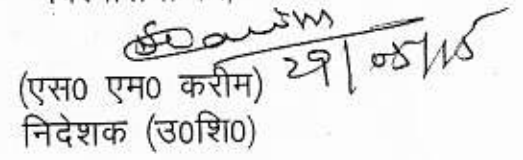 29/05/15
(एस0 एम0 करीम)
निदेशक (उ0शि0)